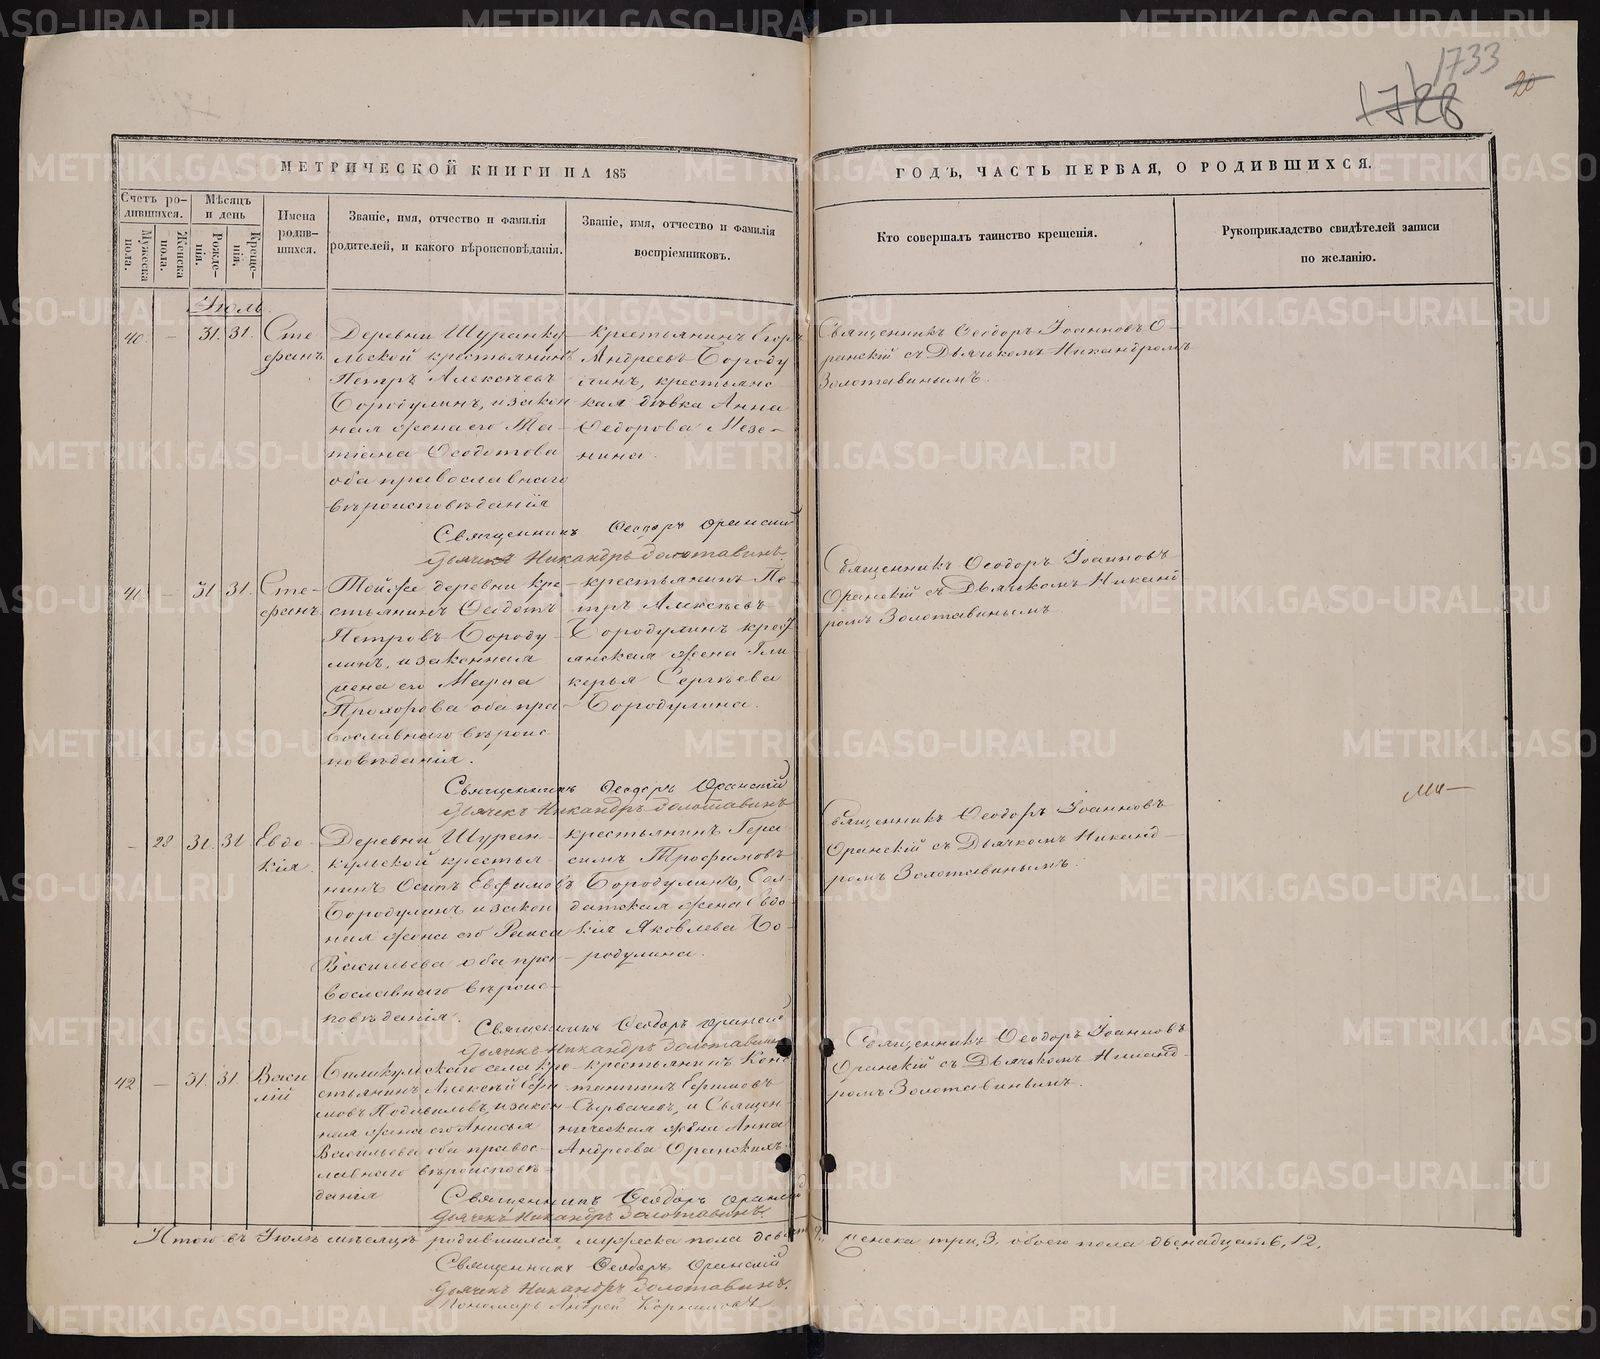 1733
1728
20
МЕТРИЧЕСКОЙ КНИГИ НА 185
ГОДЪ, ЧАСТЬ ПЕРВАЯ, О РОДИВШИХСЯ.
Счетъ ро-
дившихся.
Мужеска
пола.
Женска
пола.
Мѣсяцъ
и день
Рожде-
нія.
Креще-
нія.
Имена
родив-
шихся.
Званіе, имя, отчество и фамилія
родителей, и какого вѣроисповѣданія.
Званіе, имя, отчество и фамилія
воспріемниковъ.
Кто совершалъ таинство крещенія.
Рукоприкладство свидѣтелей записи
по желанію.
Іюль
40 - 31. 31.
Сте
фанъ
Деревни Шуранку
льской крестьянинъ
Петръ Алексѣевъ
Бородулинъ, и закон
ная жена его Та-
тіана Ѳеодотова
оба православнаго
вѣроисповѣданія
крестьянинъ Егоръ
Андреевъ Бороду
линъ, крестьянс
кая дѣвка Анна
Ѳедорова Мезе-
нина.
Священникъ Ѳеодоръ Іоанновъ О-
ранскій съ Дьячкомъ Никандромъ
Золотавинымъ.
Священникъ Ѳеодоръ Оранскій
Дьячекъ Никандръ Золотавинъ
41 - 31. 31.
Сте-
фанъ
Тойже деревни кре-
стьянинъ Ѳеодотъ
Петровъ Бороду
линъ, и законная
жена его Марѳа
Прохорова оба пра
вославнаго вѣроис
повѣданія.
крестьянинъ Пе
тръ Алексѣевъ
Бородулинъ крест
янская жена Гли
керья Сергѣева
Бородулина.
Священникъ Ѳеодоръ Іоанновъ
Оранскій съ Дьячкомъ Никанд
ромъ Золотавинымъ
Священникъ Ѳеодоръ Оранскій
Дьячекъ Никандръ Золотавинъ
- 28 31. 31
Евдо
кія
Деревни Шуран-
кульской крестья-
нинъ Осипъ Евфимовъ
Бородулинъ и закон
ная жена его Раиса
Васильева оба пра-
вославнаго вѣроис-
повѣданія.
крестьянинъ Гера
симъ Трофимовъ
Бородулинъ, Сол-
датская жена Евдо
кія Яковлева Бо-
родулина.
Священникъ Ѳеодоръ Іоанновъ
Оранскій съ Дьячкомъ Никанд-
ромъ Золотавинымъ.
Священникъ Ѳеодоръ Оранскій
Дьячекъ Никандръ Золотавинъ
42 - 31. 31.
Васи
лій
села кре-
стьянинъ Алексѣй Ефи
мовъ и закон-
ная жена его Анисья
Васильева оба правос-
лавнаго вѣроисповѣ-
данія
крестьянинъ Конс
тантинъ Ефимовъ
и Священ-
ническая жена Анна
Андреева Оранскихъ.
Священникъ Ѳеодоръ Іоанновъ
Оранскій съ Дьячкомъ Никанд-
ромъ Золотавинымъ.
Священникъ Ѳеодоръ Оранскій
Дьячекъ Никандръ Золотавинъ.
Итого въ Іюлѣ мѣсяцѣ родившихся мужеска пола девять 9, женска три, 3. обоего пола двенадцать, 12.
Священникъ Ѳеодоръ Оранскій
Дьячекъ Никандръ Золотавинъ.
Пономарь Андрей
METRIKI.GASO-URAL.RU